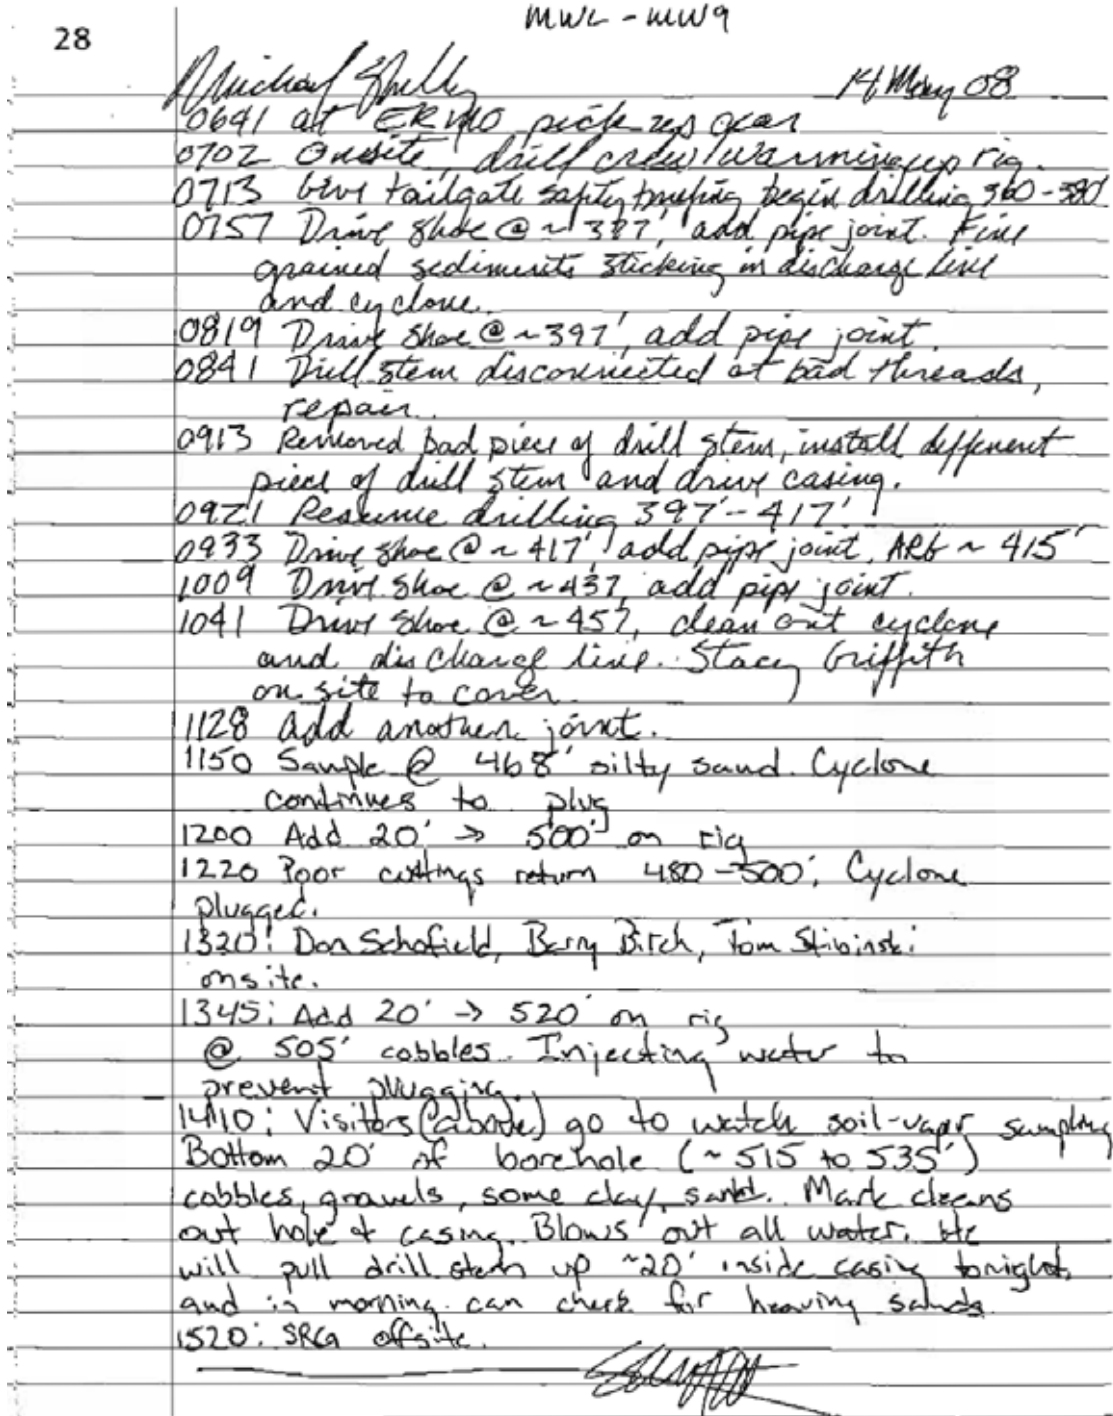 MWL-MW9
28
Michael Skelly 14 May 08
0641 at ERMO, pick up gear
0702 Onsite, drill crew warming up rig.
0713 Give tailgate safety briefing begin drilling 360-380'
0757 Drive shoe @ ~377', add pipe joint. Fine
grained sediments sticking in discharge line
and cyclone.
0819 Drive shoe @ ~397', add pipe joint.
0841 Drill stem disconnected at bad threads,
repair.
0913 Removed bad piece of drill stem, install different
piece of drill stem and drive casing.
0921 Resume drilling 397'-417'
0933 Drive shoe @ ~417' add pipe joint, ARG ~ 415'
1009 Drive shoe @ ~437, add pipe joint.
1041 Drive shoe @ ~457, clean out cyclone
and discharge line. Stacy Griffith
on site to cover.
1128 add another joint.
1150 Sample @ 468' silty sand. Cyclone
continues to plug
1200 Add 20' → 500' on rig
1220 Poor cuttings return 480-500'; Cyclone
plugged.
1320: Don Schofield, Barry Birch, Tom Stibinski
onsite.
1345: Add 20' → 520' on rig
@ 505' cobbles. Injecting water to
prevent plugging.
1410: Visitors (above) go to watch soil-vapr sampling
Bottom 20' of borehole (~515 to 535')
cobbles, gravels, some clay, sand. Mark cleans
out hole & casing. Blows out all water. He
will pull drill stem up ~20' inside casing tonight,
and in morning can check for heaving sands.
1520: SRG offsite.